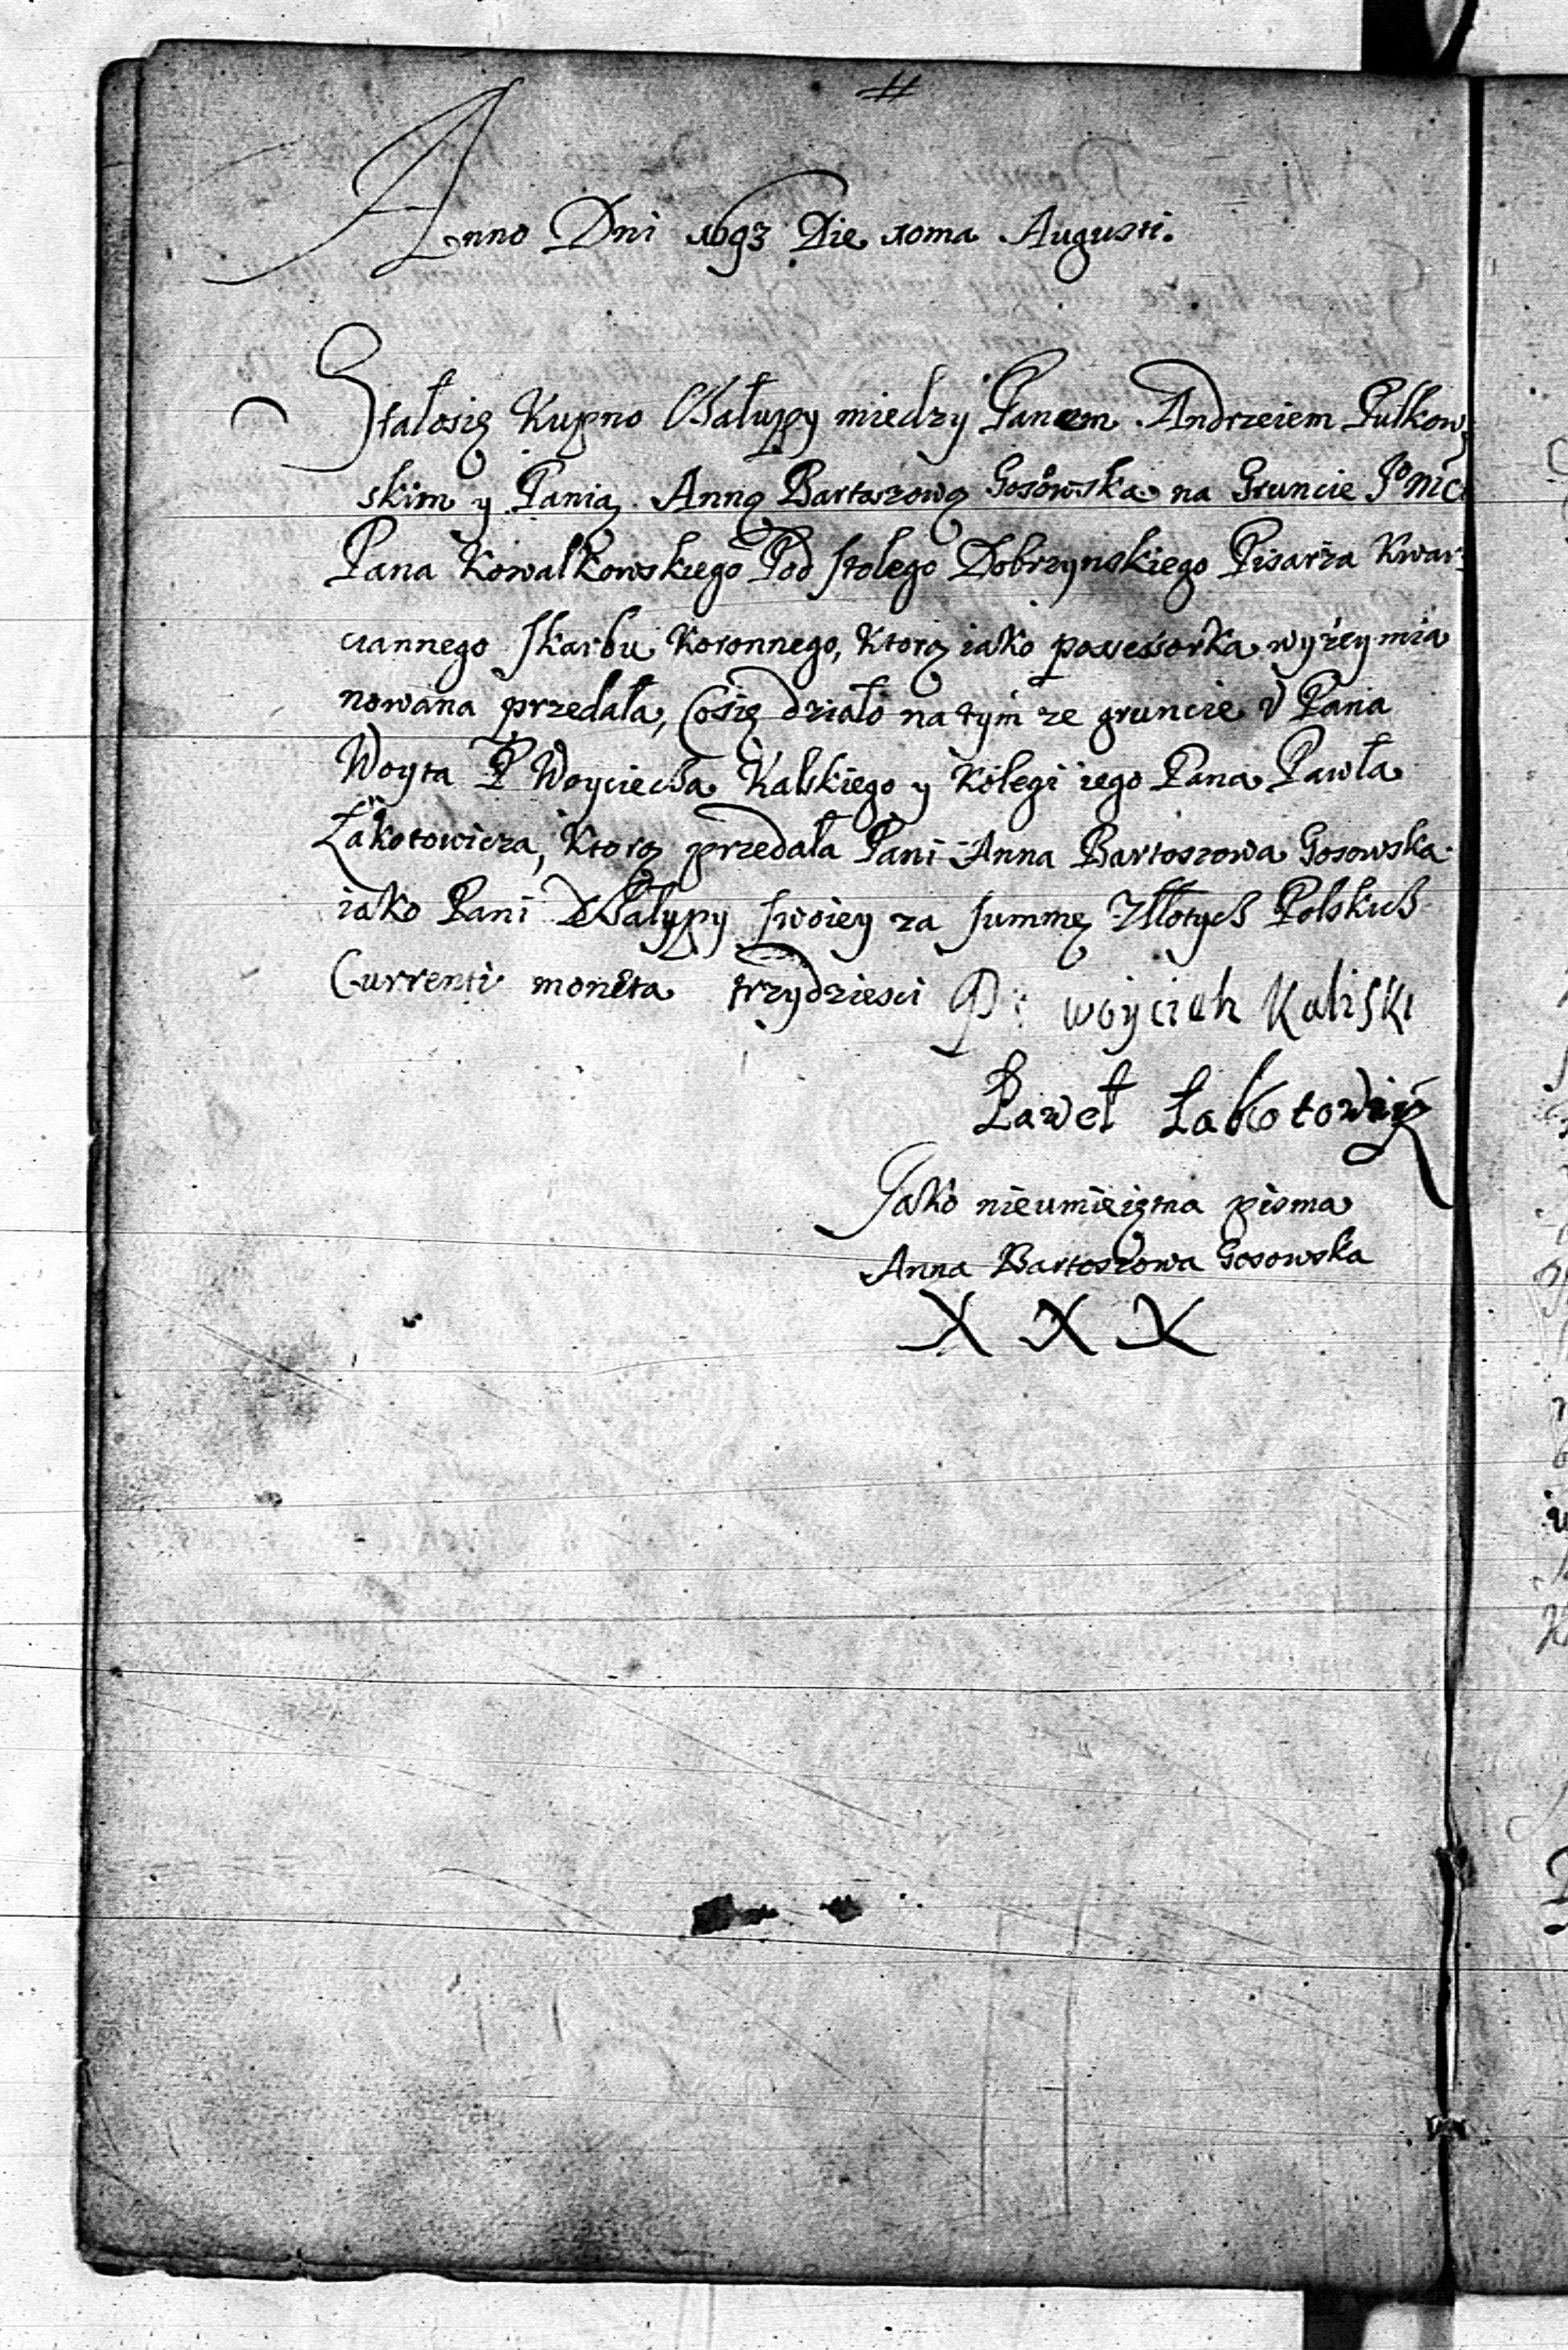 #
Anno Dni 1693 Die 10ma Augusti.
Stałosię Kupno Chałuppy miedzy Panem Andrzeiem Pułkow,
skim y Panią Anną Bartoszową Gosowska na Gruncie Jo Mc
Pana Kowalkowskiego Pod stolego Dobrzynskiego Pisarza Kwar-
ciannego Skarbu Koronnego, Ktorą iako possessorka wyżey mia
nowana przedała, Cosię działo na tym ze gruncie V Pana
Woyta P Woyciecha Kalskiego y Kolegi iego Pana Pawła
Łakotowicza, Ktorą przedała Pani Anna Bartoszowa Gosowska
iako Pani Chałupy swoiey za summę Złłotych Polskich
Currenti moneta trzydziesci P: wojcieh Kaliski
Paweł Łakotowicz
Jako nieumieiętna pisma
Anna Bartoszowa Gosowska
X X X